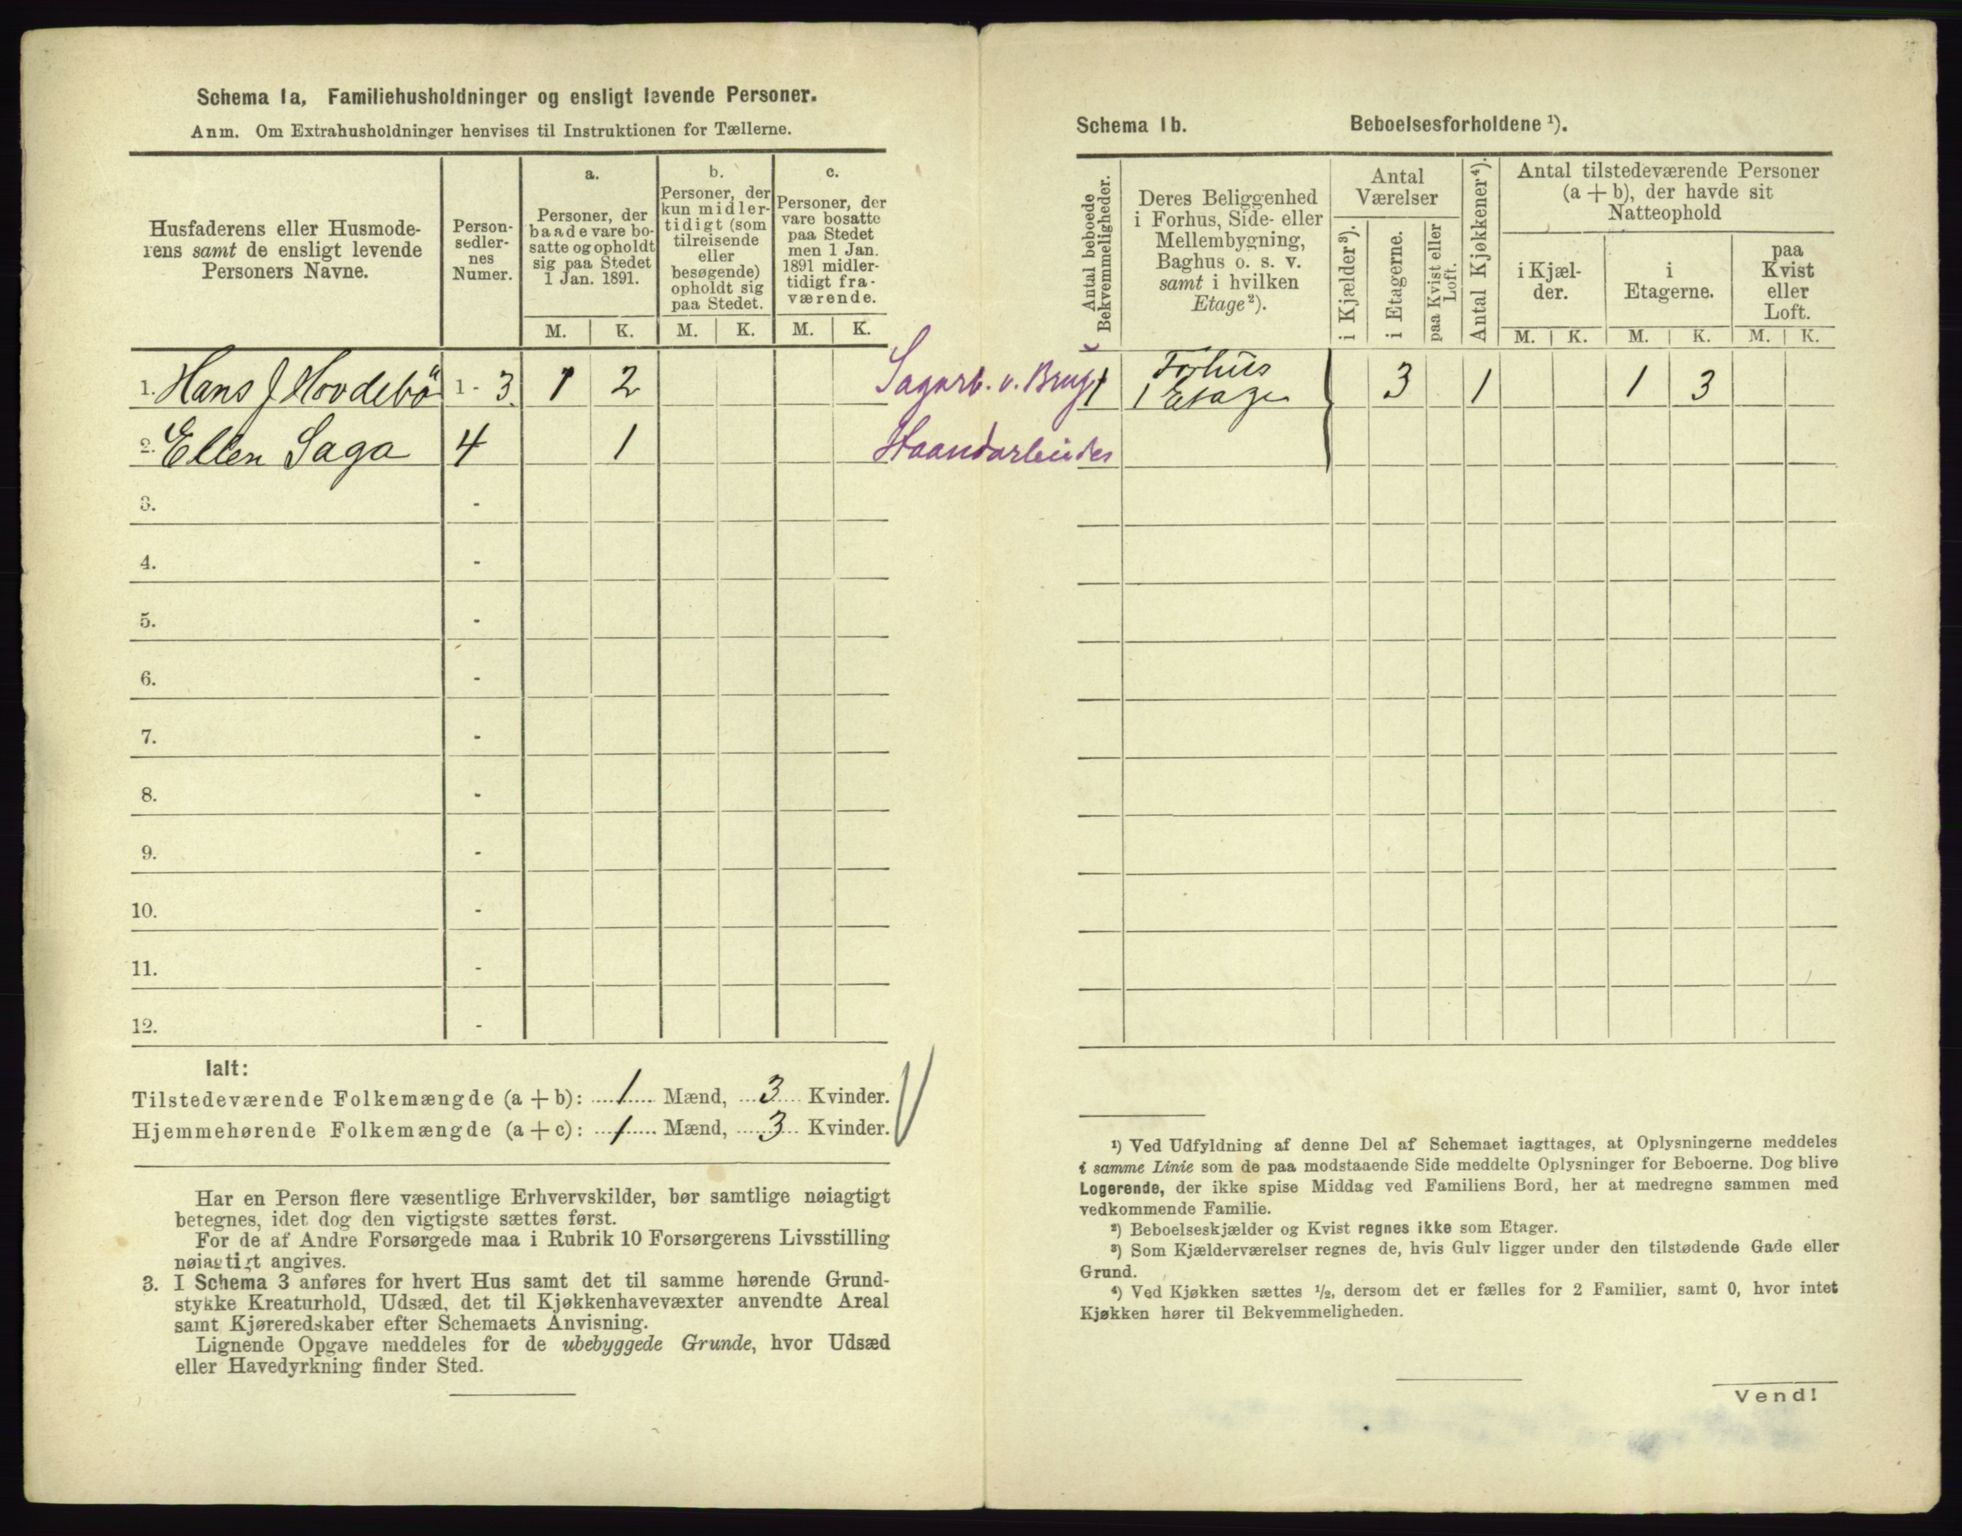 Schema 1a, Familiehusholdninger og ensligt levende Personer.
Anm. Om Extrahusholdninger henvises til Instruktionen for Tællerne.
Husfaderens eller Husmode-
rens samt de ensligt levende
Personers Navne.
Person-
sedler-
nes
Numer.
a.
Personer, der
baade vare bo-
satte og opholdt
sig paa Stedet
1 Jan. 1891.
b.
Personer, der
kun midler-
tidigt (som
tilreisende
eller
besøgende)
opholdt sig
paa Stedet.
c.
Personer, der
vare bosatte
paa Stedet
men 1 Jan.
1891 midler-
tidigt fra-
værende.
M. K. M. K. M. K.
1. Hans J Hovdebö 1 - 3 1 2 Sagarb. v. Brug
2. Ellen Saga 4 1 Haandarbeides
3. -
4. -
5. -
6. -
7. -
8. -
9. -
10. -
11. -
12. -
Ialt:
Tilstedeværende Folkemængde (a + b): 1 Mænd, 3 Kvinder.
Hjemmehørende Folkemængde (a + c): 1 Mænd, 3 Kvinder.
Har en Person flere væsentlige Erhvervskilder, bør samtlige nøiagtigt
betegnes, idet dog den vigtigste sættes først.
For de af Andre Forsørgede maa i Rubrik 10 Forsørgerens Livsstilling
nøiagtigt angives.
3. I Schema 3 anføres for hvert Hus samt det til samme hørende Grund-
stykke Kreaturhold, Udsæd, det til Kjøkkenhavevæxter anvendte Areal
samt Kjøreredskaber efter Schemaets Anvisning.
Lignende Opgave meddeles for de ubebyggede Grunde, hvor Udsæd
eller Havedyrkning finder Sted.
Schema 1b. Beboelsesforholdene ¹).
Antal beboede
Bekvemmeligheder.
Deres Beliggenhed
i Forhus, Side- eller
Mellembygning,
Baghus o. s. v.
samt i hvilken
Etage²).
Antal
Værelser
i Kjælder³).
i Etagerne.
paa Kvist eller
Loft.
Antal Kjøkkener⁴).
Antal tilstedeværende Personer
(a + b), der havde sit
Natteophold
i Kjæl-
der.
i
Etagerne.
paa
Kvist
eller
Loft.
M. K. M. K. M. K.
1 Forhus
1 Etage 3 1 1 3
¹) Ved Udfyldning af denne Del af Schemaet iagttages, at Oplysningerne meddeles
i samme Linie som de paa modstaaende Side meddelte Oplysninger for Beboerne. Dog blive
Logerende, der ikke spise Middag ved Familiens Bord, her at medregne sammen med
vedkommende Familie.
²) Beboelseskjælder og Kvist regnes ikke som Etager.
³) Som Kjælderværelser regnes de, hvis Gulv ligger under den tilstødende Gade eller
Grund.
⁴) Ved Kjøkken sættes ½, dersom det er fælles for 2 Familier, samt 0, hvor intet
Kjøkken hører til Bekvemmeligheden.
Vend!